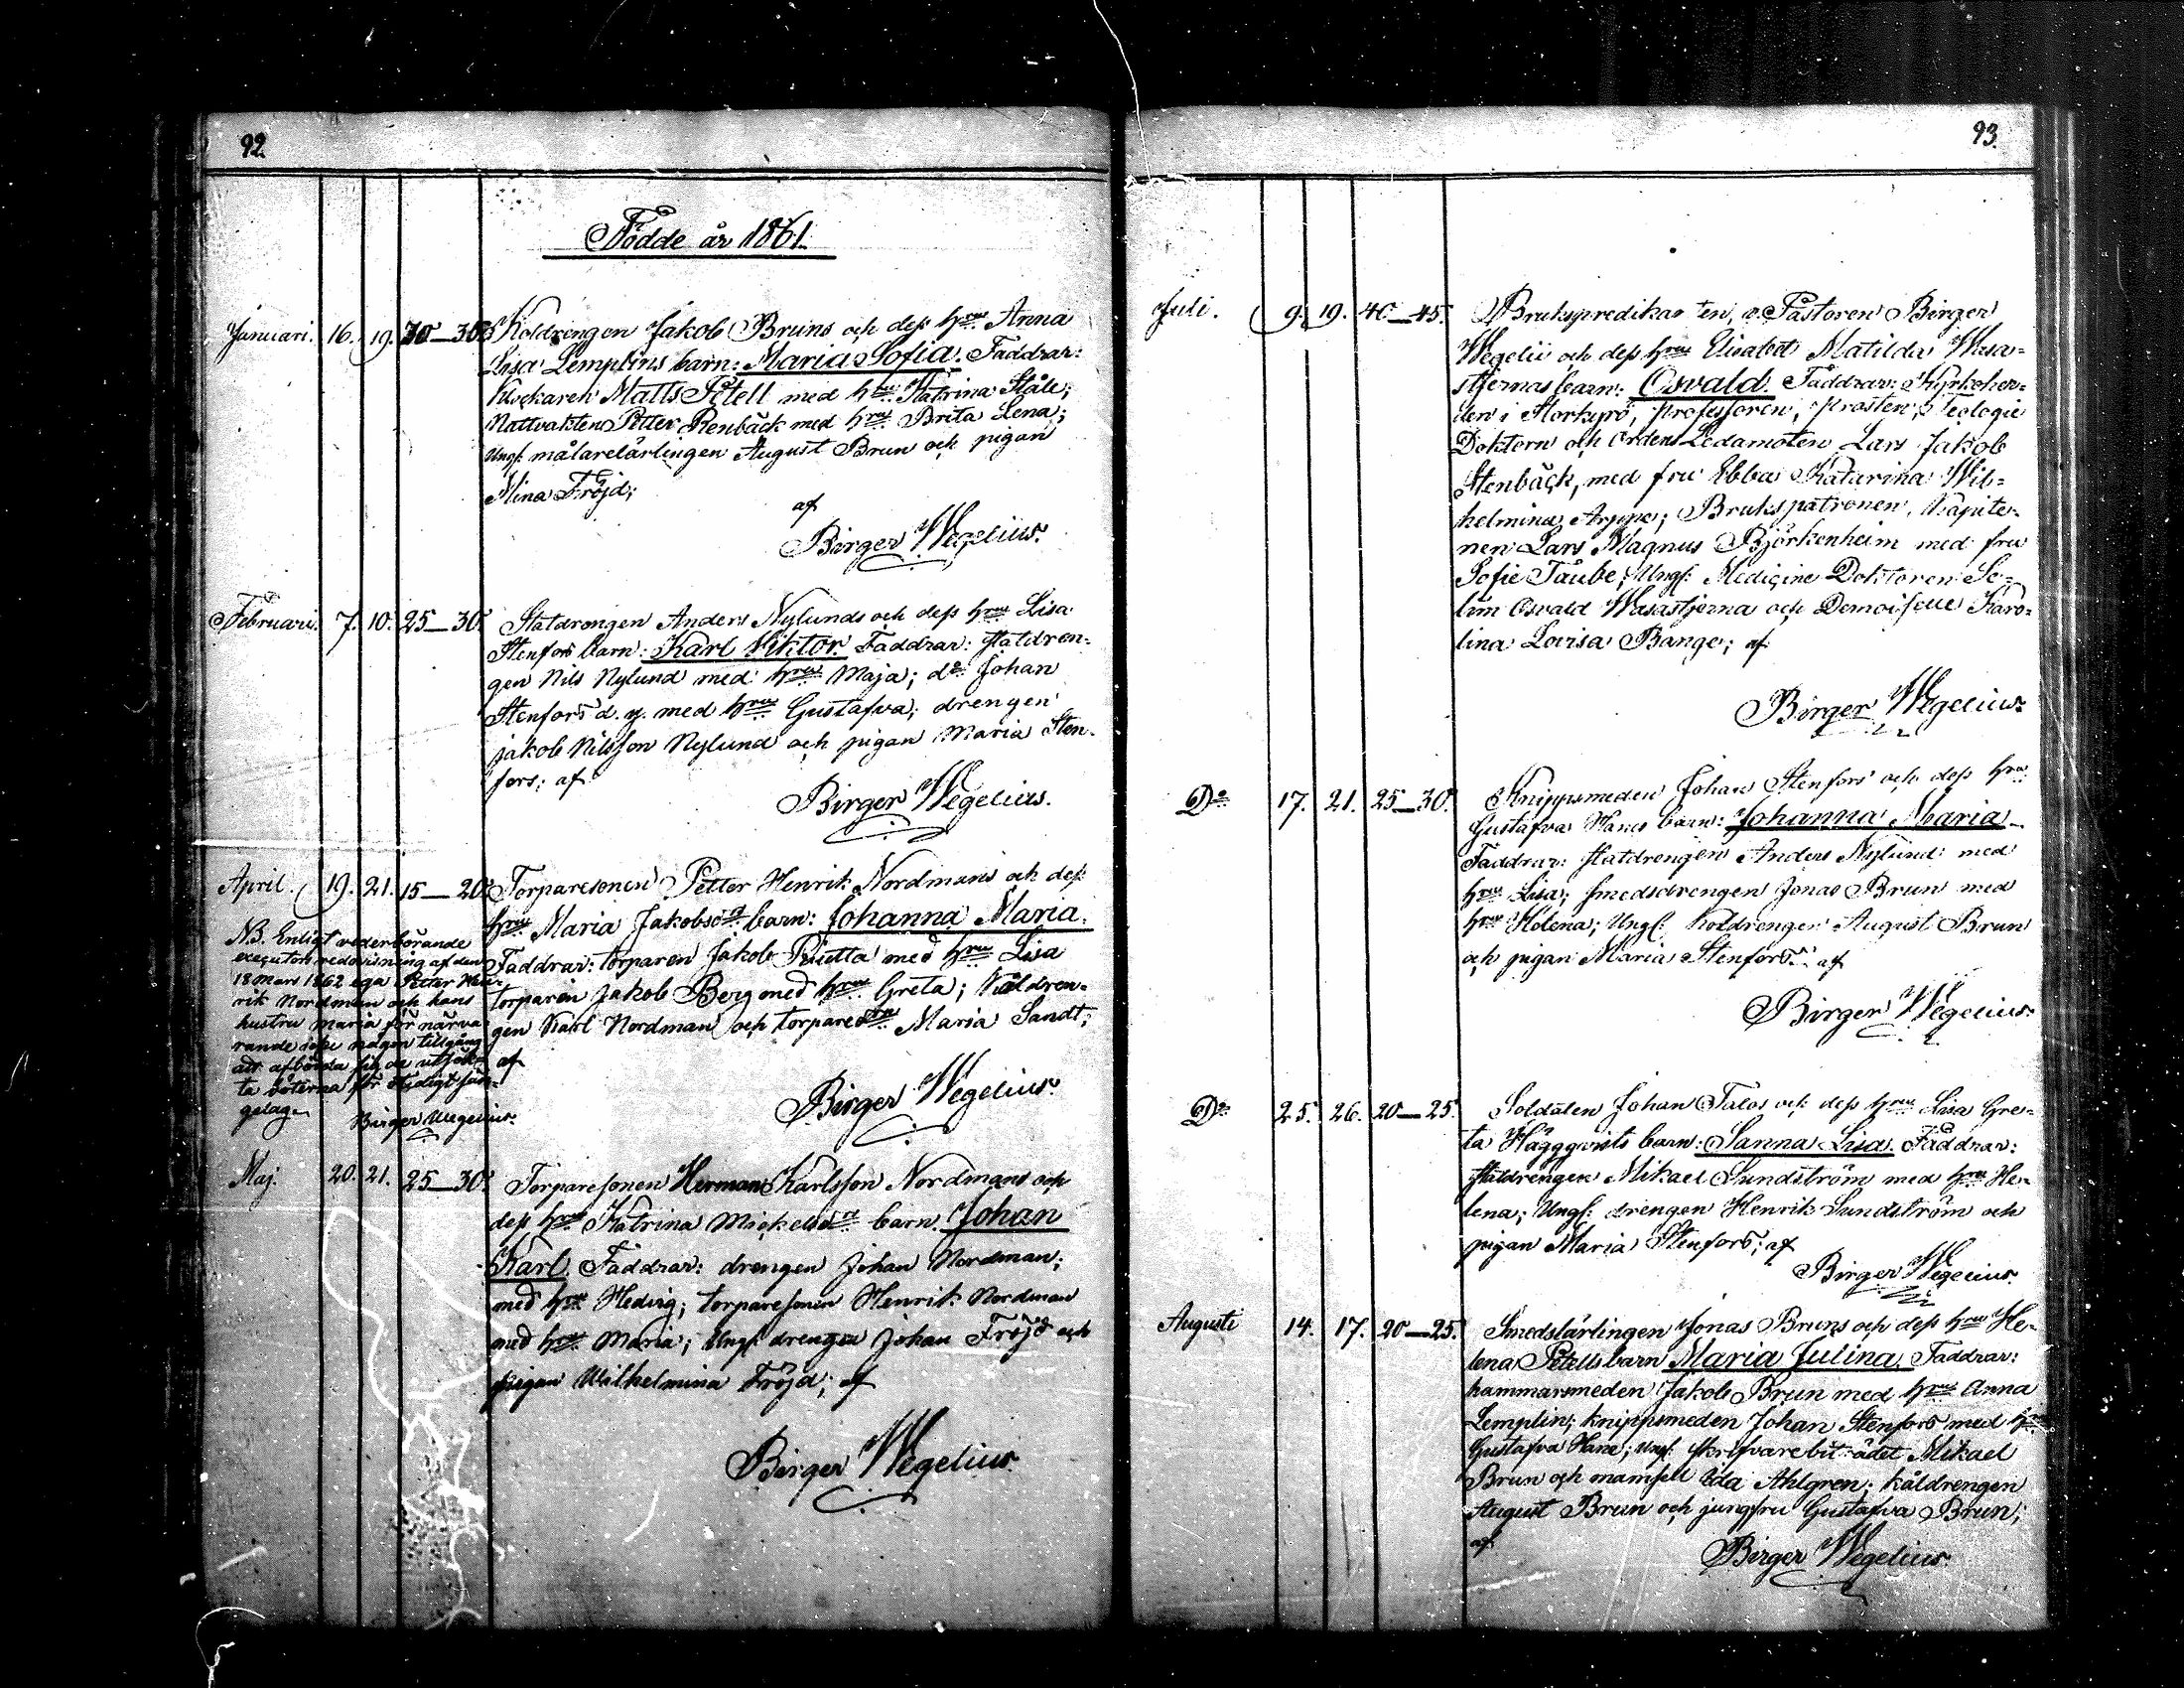 92.
Födde år 1861.
Januari. 16. 19. 30—35. Koldrengen Jakob Bruns och dess hru Anna
Lisa Lemplins barn: Maria Sofia. Faddrar:
Klockaren Matts Petell med hru Katrina Ståle;
Nattvakten Petter Renbäck med hru Brita Lena;
Ungk: målarelärlingen August Brun och pigan
Mina Fröjd;
af
Birger Wegelius.
Februari. 7. 10. 25—30. Statdrengen Anders Nylunds och dess hru Lisa
Stenfors barn: Karl Viktor. Faddrar: statdren-
gen Nils Nylund med hru Maja; do Johan
Stenfors d. y. med hru Gustafva; drengen
Jakob Nilsson Nylund och pigan Maria Sten-
fors; af
Birger Wegelius.
April. 19. 21. 15—20. Torparesonen Petter Henrik Nordmans och dess
hru Maria Jakobsdr barn: Johanna Maria.
Faddrar: torparen Jakob med hru Lisa
torparen Jakob Berg med hru Greta; Koldren-
gen Karl Nordman och torpare Maria Sandt;
af
Birger Wegelius.
NB. Enligt vederbörande
executors redovisning af den
18 Mars 1862 ega Petter Hen-
rik Nordman och hans
hustru Maria för närva-
rande icke någon tillgång
att afbörda sig de
ta böterna för otidigt sän-
gelag.
Birger Wegelius.
Maj. 20. 21. 25—30. Torparesonen Herman Karlsson Nordmans och
dess hru Katrina Mickelsdr barn Johan
Karl. Faddrar: drengen Johan Nordman;
med hru Hedvig; torparesonen Henrik Nordman
med hru Maria; Ungk: drengen Johan Fröjd och
pigan Wilhelmina Fröjd; af
Birger Wegelius.
93.
Juli. 9. 19. 40—45. Brukspredikanten, v. Pastoren Birger
Wegelii och dess hru Elisabet Matilda Wasa-
stjernas barn: Osvald. Faddrar: Kyrkoher-
den i Storkyro, Professoren, Prosten, Teologie
Doktorn och Ordens Ledamoten Lars Jakob
Stenbäck, med fru Ebba Katarina Wil-
helmina Arppe; Brukspatronen, Kapite-
nen Lars Magnus Björkenheim med fru
Sofie Taube; Ungk: Medicine Doktoren Se-
lim Osvald Wasastjerna och Demoiselle Karo-
lina Lovisa Bange; af
Birger Wegelius.
Do 17. 21. 25—30. Knippsmeden Johan Stenfors och dess hru
Gustafva Hanes barn: Johanna Maria.
Faddrar: statdrengen Anders Nylund med
hru Lisa; smedsdrengen Jonas Brun med
hru Helena; Ungk: koldrengen August Brun
och pigan Maria Stenfors; af
Birger Wegelius.
Do 25. 26. 20—25. Soldaten Johan Talos och dess hru Lisa Gre-
ta Häggqvists barn: Sanna Lisa. Faddrar:
statdrengen Mikael Sundström med hru He-
lena; Ungk: drengen Henrik Sundström och
pigan Maria Stenfors; af
Birger Wegelius.
Augusti 14. 17. 20—25. Smedslärlingen Jonas Bruns och dess hru He-
lena Petells barn Maria Julina. Faddrar:
hammarsmeden Jakob Brun med hru Anna
Lemplin; knippsmeden Johan Stenfors med hru
Gustafva Hane; Ungk: skrifvarebiträdet Mikael
Brun och mamsell Ida Ahlgren; koldrengen
August Brun och jungfru Gustafva Brun;
af
Birger Wegelius.